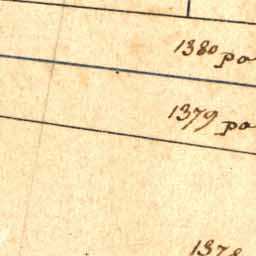 1380 po
1379 po
1378